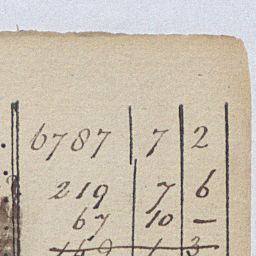 6787 7 2
219 7 6
67 10 –